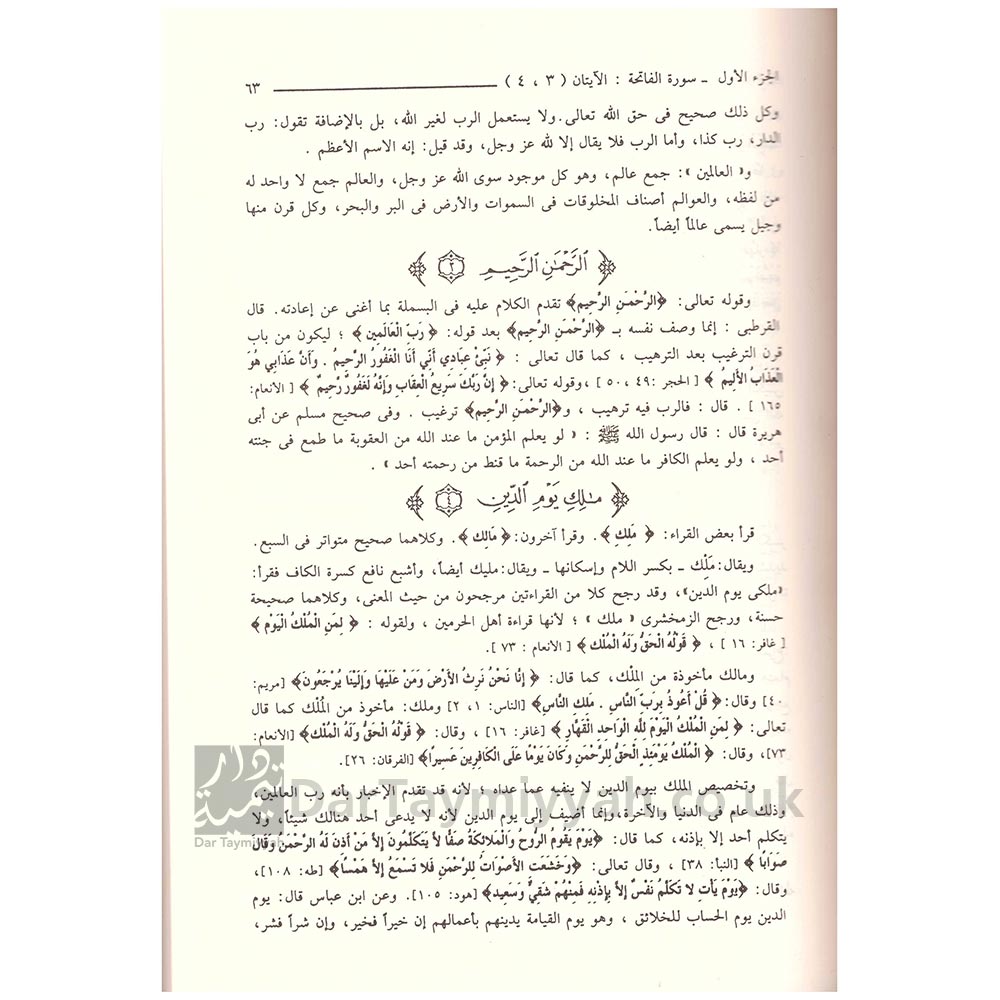 الجزء الأول - سورة الفاتحة : الآيتان ( ٣ ، ٤ ) ٦٣
وكل ذلك صحيح فى حق الله تعالى.ولا يستعمل الرب لغير الله، بل بالإضافة تقول: رب
الدار، رب كذا، وأما الرب فلا يقال إلا لله عز وجل، وقد قيل: إنه الاسم الأعظم .
و« العالمين »: جمع عالم، وهو كل موجود سوى الله عز وجل، والعالم جمع لا واحد له
من لفظه، والعوالم أصناف المخلوقات فى السموات والأرض فى البر والبحر، وكل قرن منها
وجيل يسمى عالماً أيضاً.
﴿ ٱلرَّحْمَـٰنِ ٱلرَّحِيمِ ٣ ﴾
وقوله تعالى: ﴿الرَّحْمَـنِ الرَّحِيمِ﴾ تقدم الكلام عليه فى البسملة بما أغنى عن إعادته. قال
القرطبى : إنما وصف نفسه بـ ﴿الرَّحْمَـنِ الرَّحِيمِ﴾ بعد قوله: ﴿ رَبِّ الْعَالَمِين ﴾ ؛ ليكون من باب
قرن الترغيب بعد الترهيب ، كما قال تعالى : ﴿ نَبِّئْ عِبَادِي أَنِّي أَنَا الْغَفُورُ الرَّحِيمُ . وَأَنَّ عَذَابِي هُوَ
الْعَذَابُ الأَلِيمُ ﴾ [ الحجر :٤٩ ، ٥٠ ] ،وقوله تعالى:﴿ إِنَّ رَبَّكَ سَرِيعُ الْعِقَابِ وَإِنَّهُ لَغَفُورٌ رَّحِيمٌ ﴾ [ الأنعام:
١٦٥ ] . قال : فالرب فيه ترهيب ، و﴿الرَّحْمَـنِ الرَّحِيمِ﴾ ترغيب . وفى صحيح مسلم عن أبى
هريرة قال : قال رسول الله ﷺ : « لو يعلم المؤمن ما عند الله من العقوبة ما طمع فى جنته
أحد ، ولو يعلم الكافر ما عند الله من الرحمة ما قنط من رحمته أحد » .
﴿ مَـٰلِكِ يَوْمِ ٱلدِّينِ ٤ ﴾
قرأ بعض القراء: ﴿ مَلِكِ ﴾ . وقرأ آخرون:﴿ مَالِكِ ﴾. وكلاهما صحيح متواتر فى السبع.
ويقال:مَلِك - بكسر اللام وإسكانها - ويقال:مليك أيضاً، وأشبع نافع كسرة الكاف فقرأ:
«ملكى يوم الدين»، وقد رجح كلا من القراءتين مرجحون من حيث المعنى، وكلاهما صحيحة
حسنة، ورجح الزمخشرى « ملك » ؛ لأنها قراءة أهل الحرمين ، ولقوله : ﴿ لِمَنِ الْمُلْكُ الْيَوْمَ ﴾
[ غافر: ١٦ ] ، ﴿ قَوْلُهُ الْحَقُّ وَلَهُ الْمُلْك ﴾ [ الأنعام : ٧٣ ].
ومالك مأخوذة من المِلْك، كما قال: ﴿ إِنَّا نَحْنُ نَرِثُ الأَرْضَ وَمَنْ عَلَيْهَا وَإِلَيْنَا يُرْجَعُونَ﴾ [مريم:
٤٠] وقال:﴿ قُلْ أَعُوذُ بِرَبِّ النَّاسِ . مَلِكِ النَّاسِ﴾ [الناس: ١، ٢] وملك: مأخوذ من المُلْك كما قال
تعالى: ﴿ لِمَنِ الْمُلْكُ الْيَوْمَ لِلَّهِ الْوَاحِدِ الْقَهَّارِ﴾ [غافر: ١٦] ، وقال: ﴿ قَوْلُهُ الْحَقُّ وَلَهُ الْمُلْكُ﴾ [الأنعام:
٧٣]، وقال: ﴿ الْمُلْكُ يَوْمَئِذٍ الْحَقُّ لِلرَّحْمَنِ وَكَانَ يَوْمًا عَلَى الْكَافِرِينَ عَسِيرًا﴾ [الفرقان: ٢٦].
وتخصيص الملك بيوم الدين لا ينفيه عما عداه ؛ لأنه قد تقدم الإخبار بأنه رب العالمين،
وذلك عام فى الدنيا والآخرة،وإنما أضيف إلى يوم الدين لأنه لا يدعى أحد هنالك شيئاً، ولا
يتكلم أحد إلا بإذنه، كما قال: ﴿يَوْمَ يَقُومُ الرُّوحُ وَالْمَلائِكَةُ صَفًّا لاَ يَتَكَلَّمُونَ إِلاَّ مَنْ أَذِنَ لَهُ الرَّحْمَنُ وَقَالَ
صَوَابًا ﴾ [النبأ: ٣٨] ، وقال تعالى: ﴿وَخَشَعَتِ الأَصْوَاتُ لِلرَّحْمَنِ فَلا تَسْمَعُ إِلاَّ هَمْسًا﴾ [طه: ١٠٨]،
وقال: ﴿يَوْمَ يَأْتِ لا تَكَلَّمُ نَفْسٌ إِلاَّ بِإِذْنِهِ فَمِنْهُمْ شَقِيٌّ وَسَعِيد﴾ [هود: ١٠٥]. وعن ابن عباس قال: يوم
الدين يوم الحساب للخلائق ، وهو يوم القيامة يدينهم بأعمالهم إن خيراً فخير، وإن شراً فشر،
دار تيمية
Dar Taymiyyah
DarTaymiyyah.co.uk